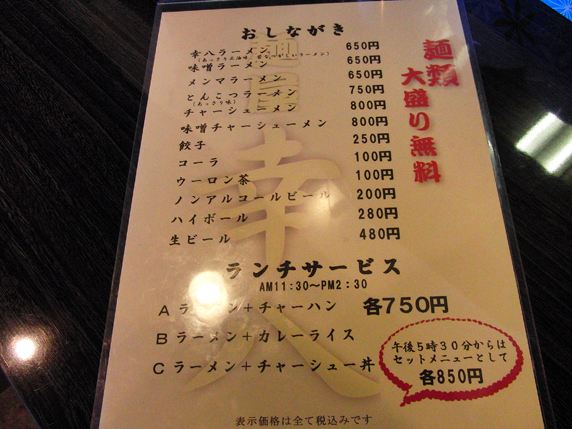 おしながき
幸八ラーメン 650円
味噌ラーメン 650円
メンマラーメン 650円
とんこつラーメン 750円
(あっさり味)
チャーシューメン 800円
味噌チャーシューメン 800円
餃子 250円
コーラ 100円
ウーロン茶 100円
ノンアルコールビール 200円
ハイボール 280円
生ビール 480円
麺類
大盛り無料
ランチサービス
AM11:30~PM2:30
Aラーメン+チャーハン 各750円
Bラーメン+カレーライス
Cラーメン+チャーシュー丼
午後5時30分からは
セットメニューとして
各850円
表示価格は全て税込みです